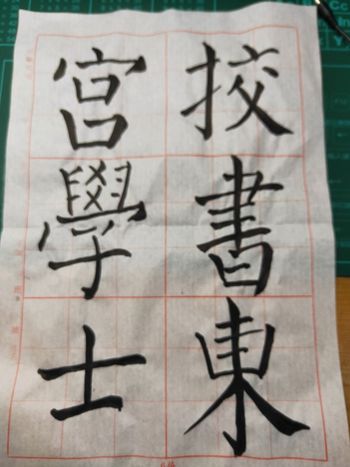 挍書東
宮學士